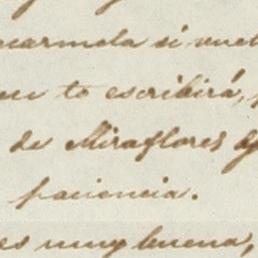 ecarmela si vuel
te escribirá,
de Miraflores
paciencia.
es muy buena,